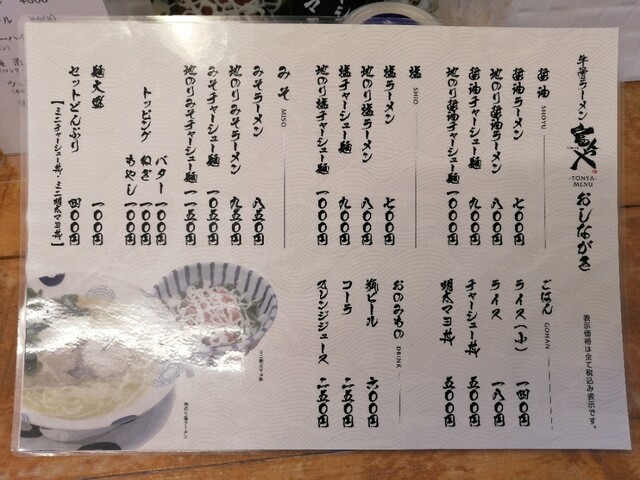 牛骨ラーメン
富屋
-TONYA-
MENU
おしながき
表示価格は全て税込み表示です。
醤油 SHOYU
醤油ラーメン 七〇〇円
地のり醤油ラーメン 八〇〇円
醤油チャーシュー麺 九〇〇円
地のり醤油チャーシュー麺 一〇〇〇円
塩 SHIO
塩ラーメン 七〇〇円
地のり塩ラーメン 八〇〇円
塩チャーシュー麺 九〇〇円
地のり塩チャーシュー麺 一〇〇〇円
みそ MISO
みそラーメン 八五〇円
地のりみそラーメン 九五〇円
みそチャーシュー麺 一〇五〇円
地のりみそチャーシュー麺 一一五〇円
トッピング
バター 一〇〇円
ねぎ 一〇〇円
もやし 一〇〇円
麺大盛 一〇〇円
セットどんぶり 四〇〇円
【ミニチャーシュー丼・ミニ明太マヨ丼】
ごはん GOHAN
ライス(小) 一四〇円
ライス 一八〇円
チャーシュー丼 五〇〇円
明太マヨ丼 五〇〇円
おのみもの DRINK
瓶ビール 六〇〇円
コーラ 二五〇円
オレンジジュース 二五〇円
ミニ明太マヨ丼
地のり塩ラーメン